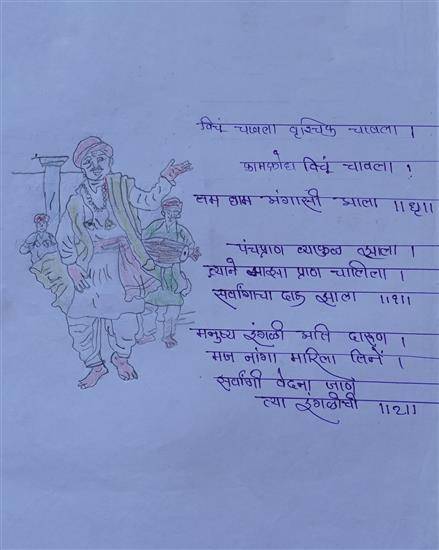 विंचू चावला वृश्चिक चावला ।
कामक्रोध विंचू चावला ।
तम घाम अंगासी आला ॥धृ॥
पंचप्राण व्याकुळ झाला ।
त्याने माझ्या प्राण चालिला ।
सर्वांगाचा दाह झाला ॥१॥
मनुष्य इंगळी अति दारूण ।
मज नांगा मारिला तिनें ।
सर्वांगी वेदना जाणे
त्या इंगळीची ॥२॥